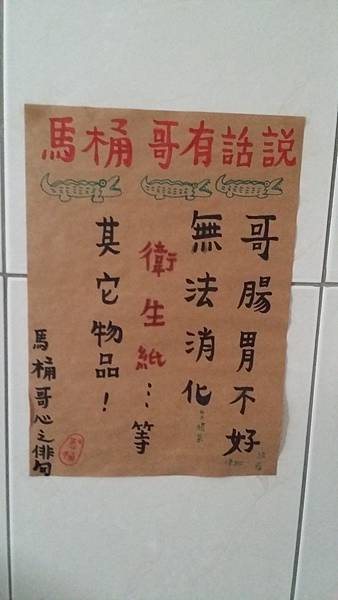 馬桶哥有話說
哥腸胃不好
無法消化
衛生紙...等
其它物品!
馬桶哥心之俳句